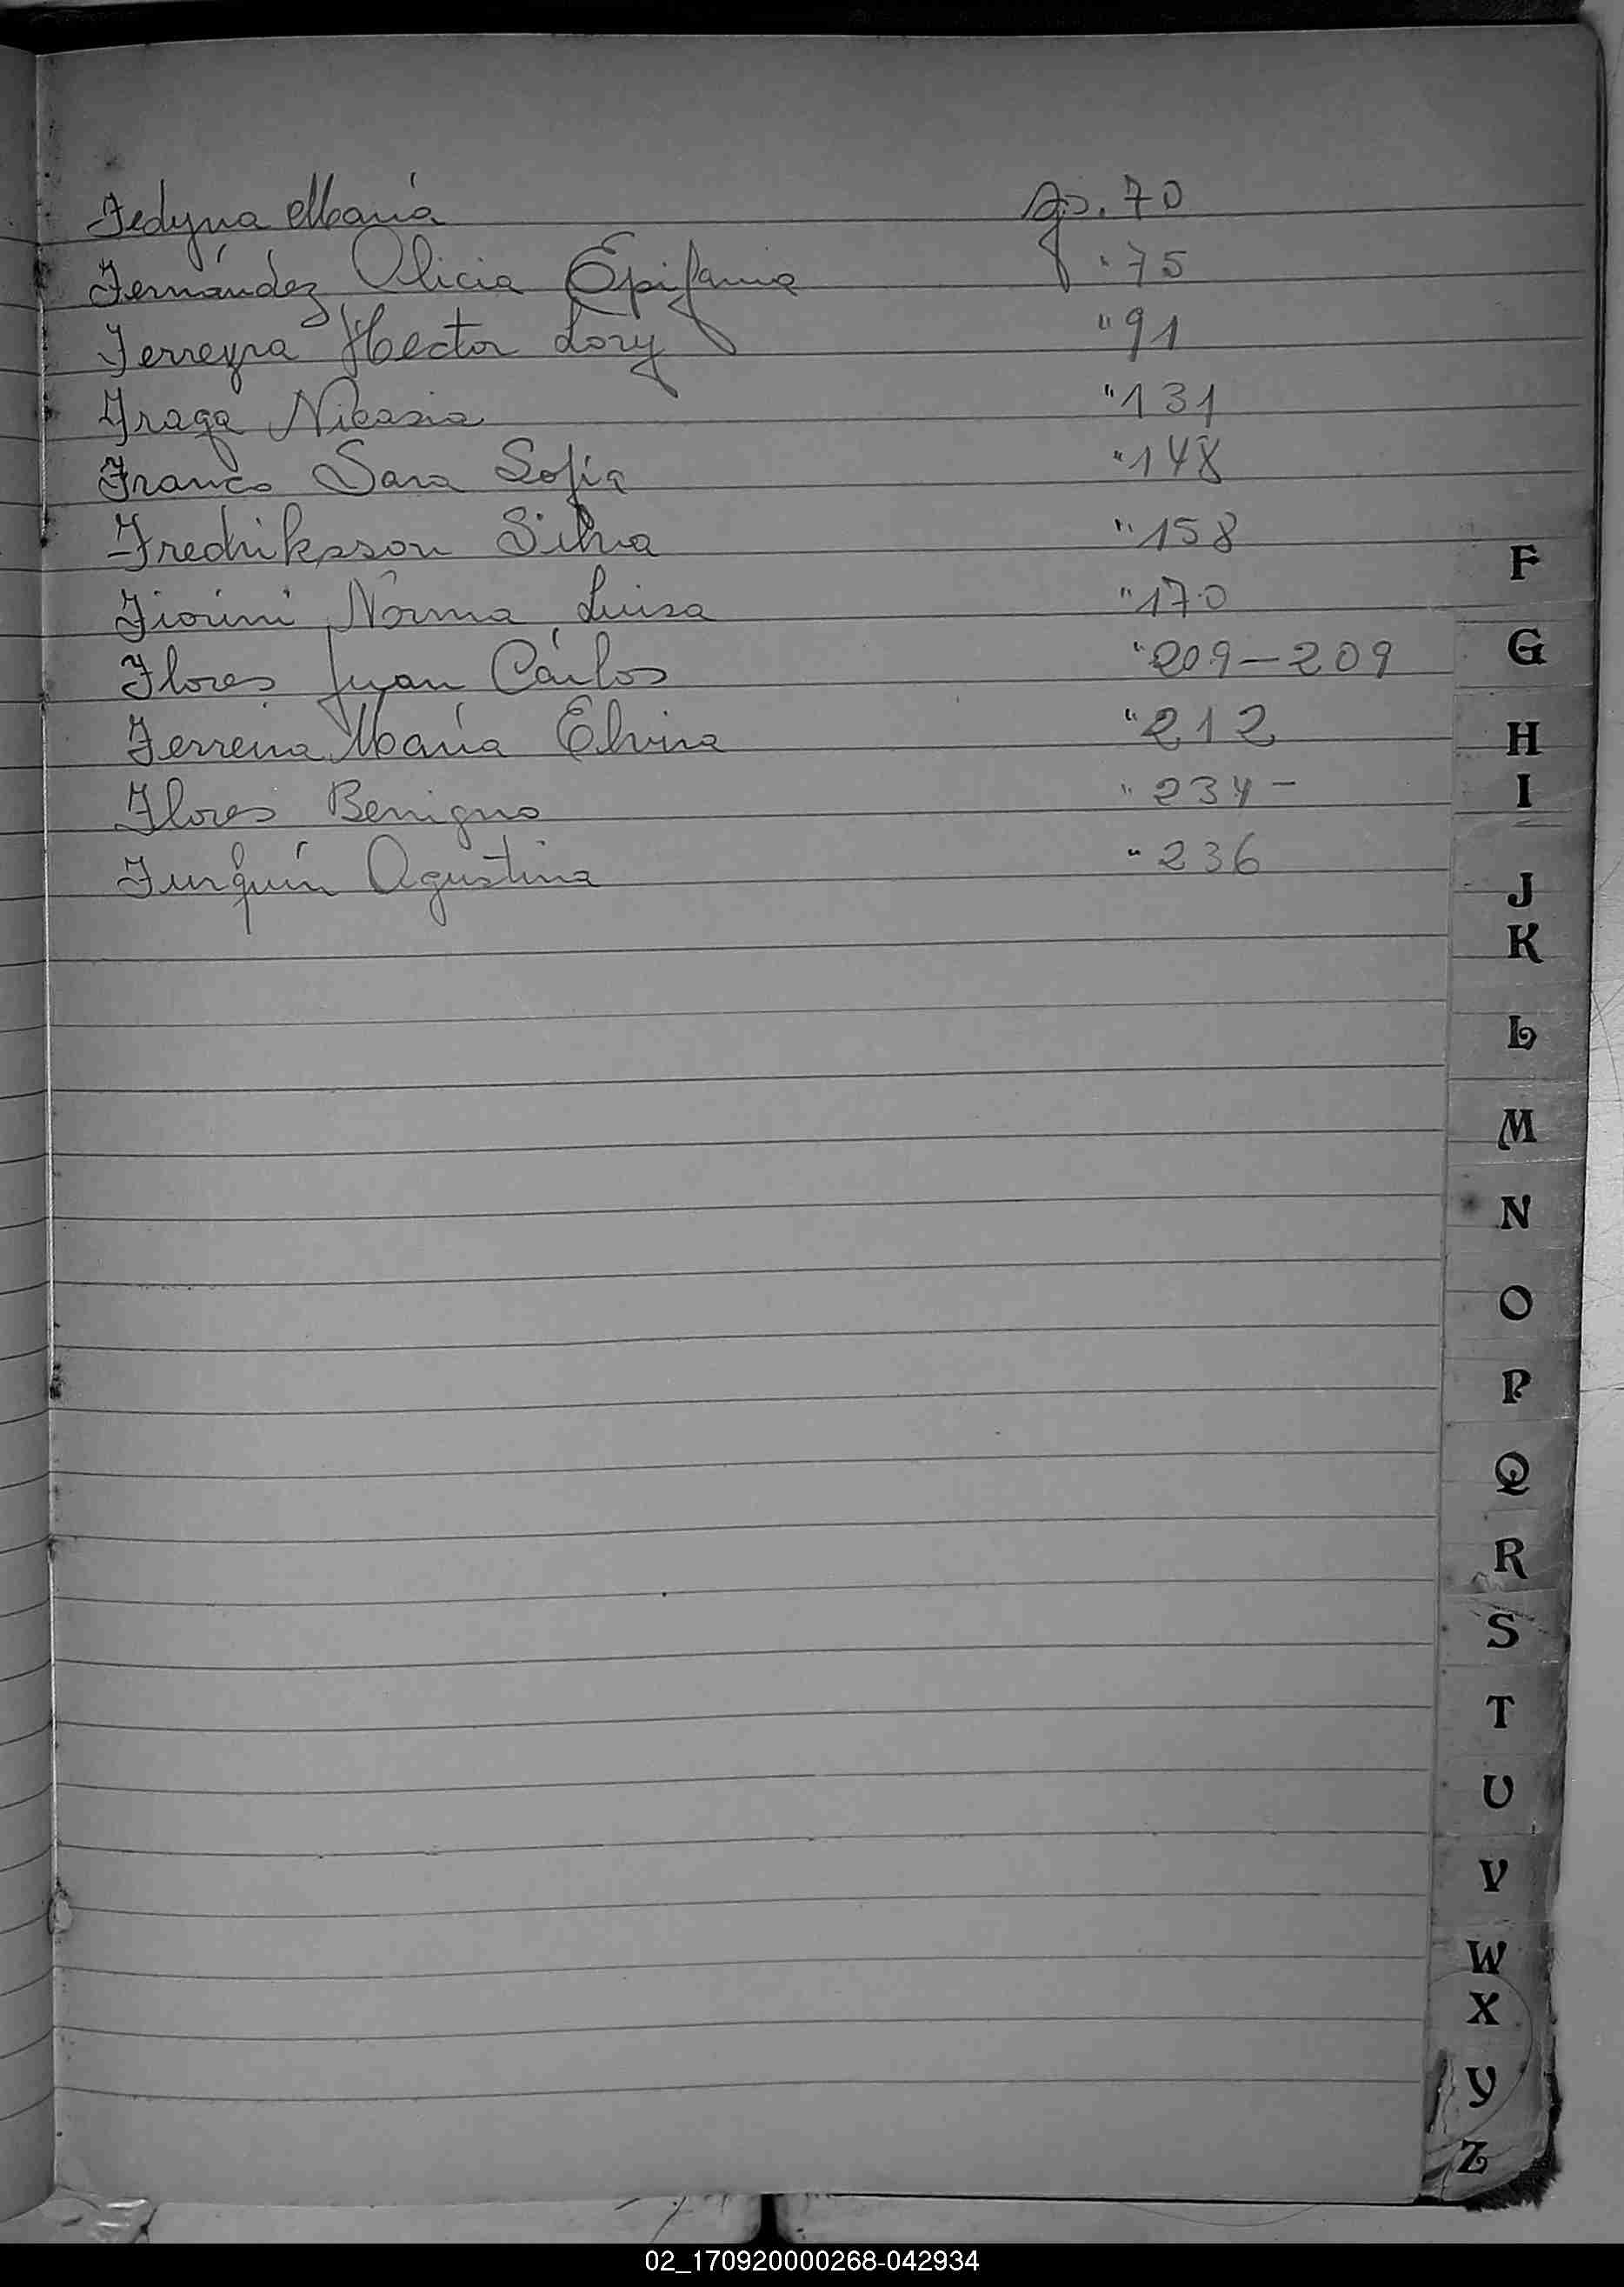 Fedyna María pgs. 70
Fernández Alicia Epifania " 75
Ferreyra Hector Lory " 91
Fraga Nicasia " 131
Franco Sara Sofía " 148
Fredriksson Silvia " 158
Fiorini Norma Luisa " 170
Flores Juan Carlos " 209-209
Ferreira María Elvira " 212
Flores Benigno " 234-
Furquín Agustina " 236
F
G
H
I
J
K
L
M
N
O
P
Q
R
S
T
U
V
W
X
Y
Z
02_170920000268-042934